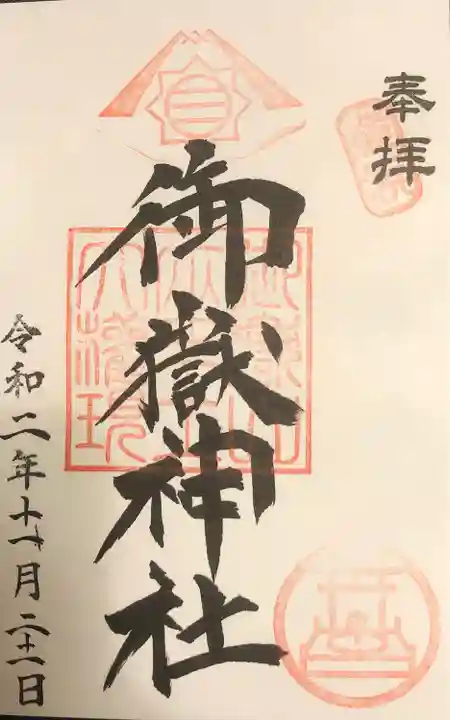 奉拝
御嶽神社
令和二年十一月二十一日